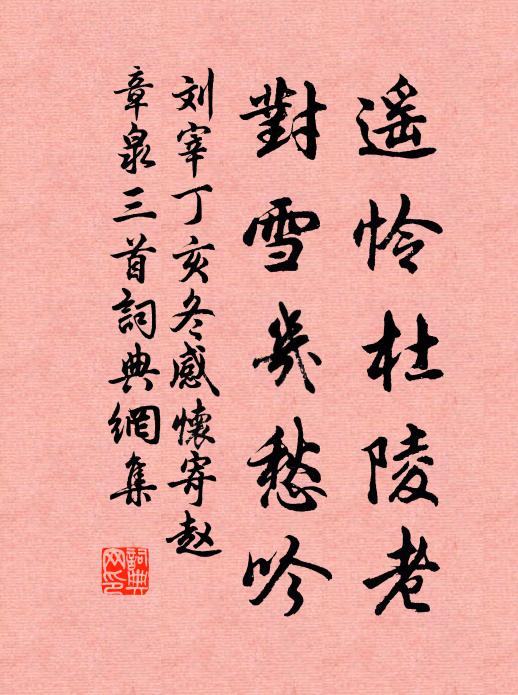 遥怜杜陵老
對雪幾愁吟
刘宰丁亥冬感懷寄赵
章泉三首詞典網集
詞典
网印